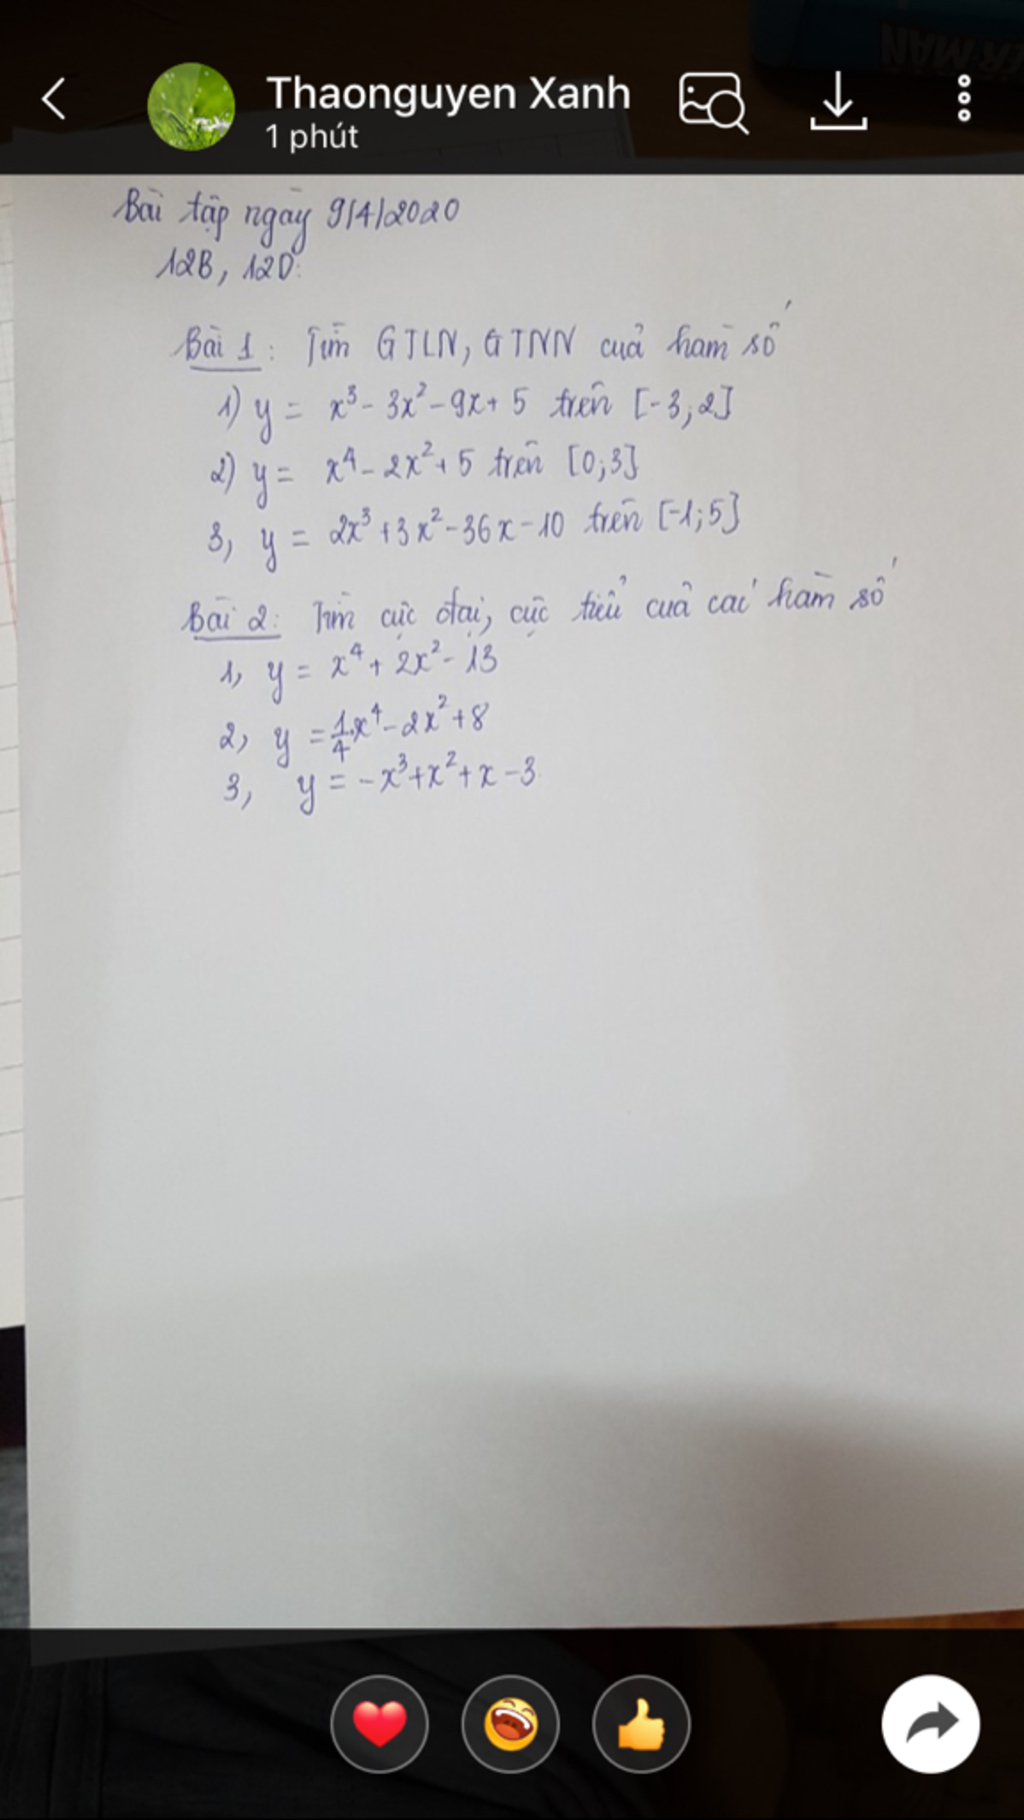 Thaonguyen Xanh
1 phút
Bài tập ngày 9/4/2020
12B, 12D:
Bài 1: Tìm GTLN, GTNN của hàm số
1) y = x³ - 3x² - 9x + 5 trên [-3; 2]
2) y = x⁴ - 2x² + 5 trên [0; 3]
3, y = 2x³ + 3x² - 36x - 10 trên [-1; 5]
Bài 2: Tìm cực đại, cực tiểu của các hàm số
1, y = x⁴ + 2x² - 13
2, y = 1/4 x⁴ - 2x² + 8
3, y = -x³ + x² + x - 3